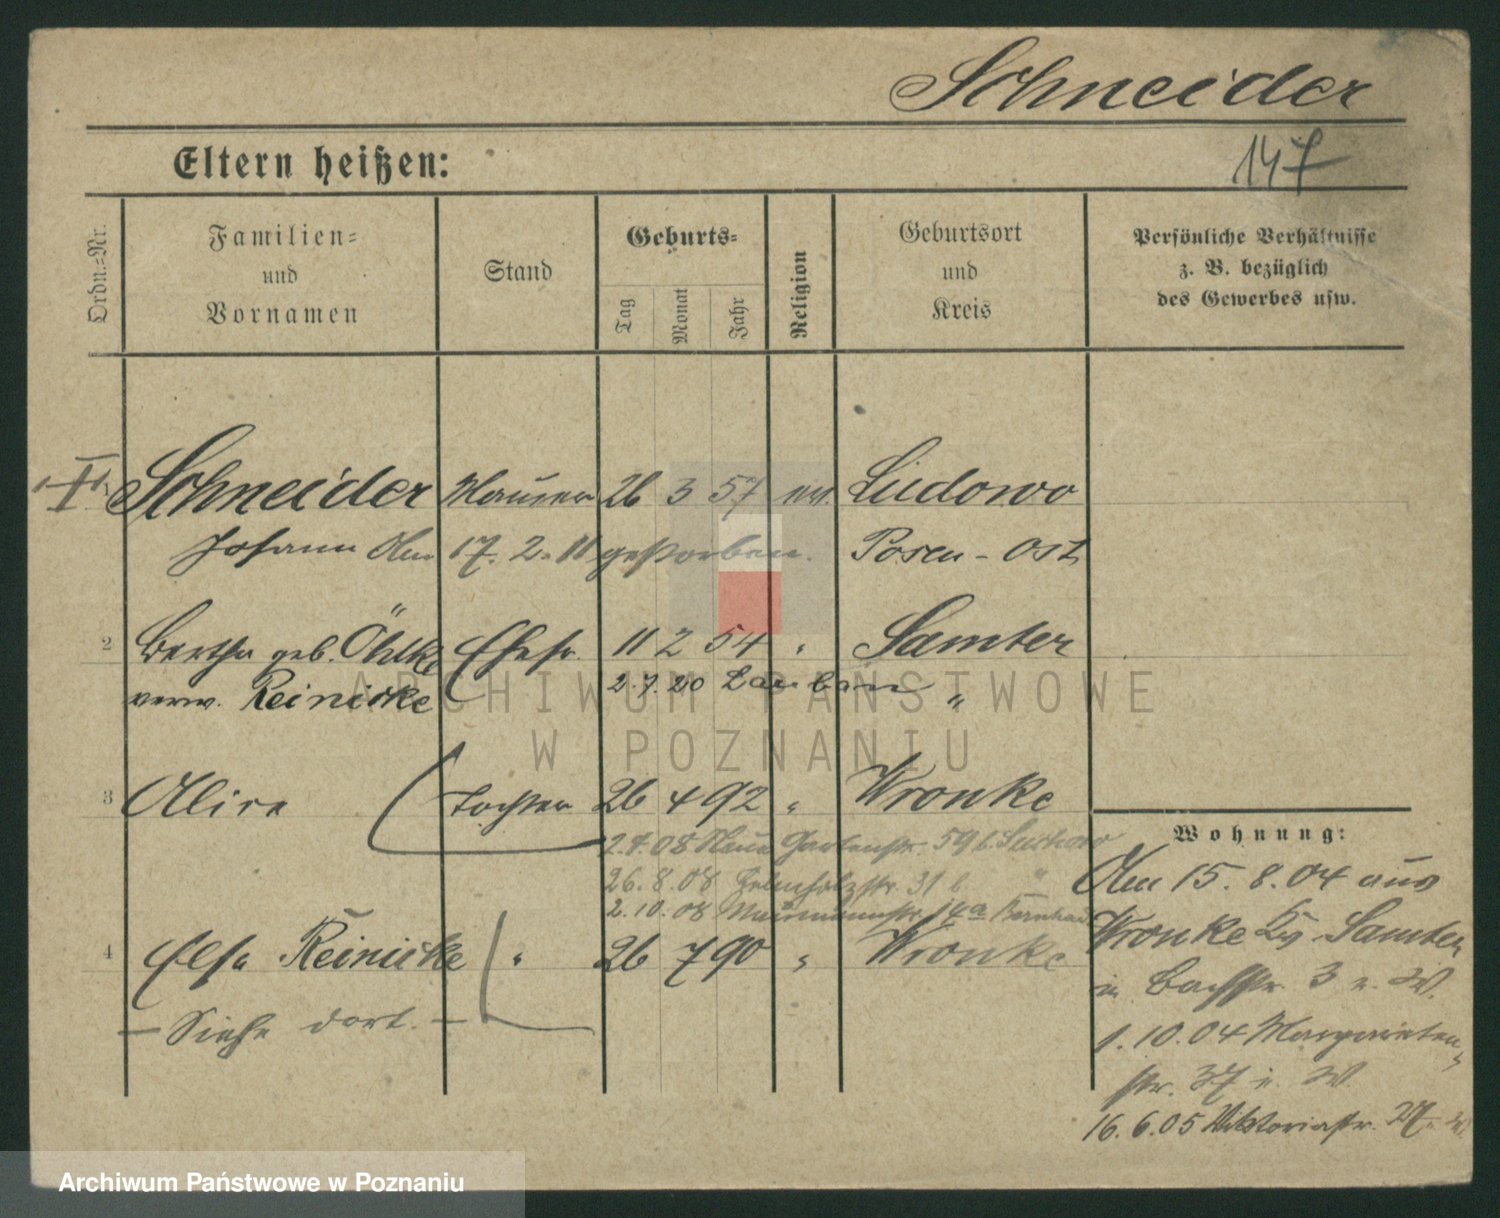 Schneider
147
Eltern heißen:
Ordn.=Nr.
Familien=
und
Vornamen
Stand
Geburts=
Tag
Monat
Jahr
Religion
Geburtsort
und
Kreis
Persönliche Verhältnisse
z. B. bezüglich
des Gewerbes usw.
Schneider Maurer 26 3 57 ev. Ludowo
Johann Am 17. 2. 11 gestorben. Posen - Ost
2 Bertha geb. Öhlke Ehefr. 11 2 54 " Samter
verw. Reinicke 2.7.20 Lauban "
3 Alice Tochter 26 4 92 " Wronke
2.4.08 Neue Gartenstr. 59 b.
26.8.08 31 b. "
2.10.08 14a
4 Elsa Reinicke " 26 7 90 " Wronke
— Siehe dort. —
Wohnung:
Am 15. 8. 04 aus
Wronke Kr. Samter
in Bachstr. 3 n. W.
1. 10. 04 Margareten-
str. 37 i. W.
16. 6. 05 Viktoriastr. 27
ARCHIWUM PAŃSTWOWE
W POZNANIU
Archiwum Państwowe w Poznaniu